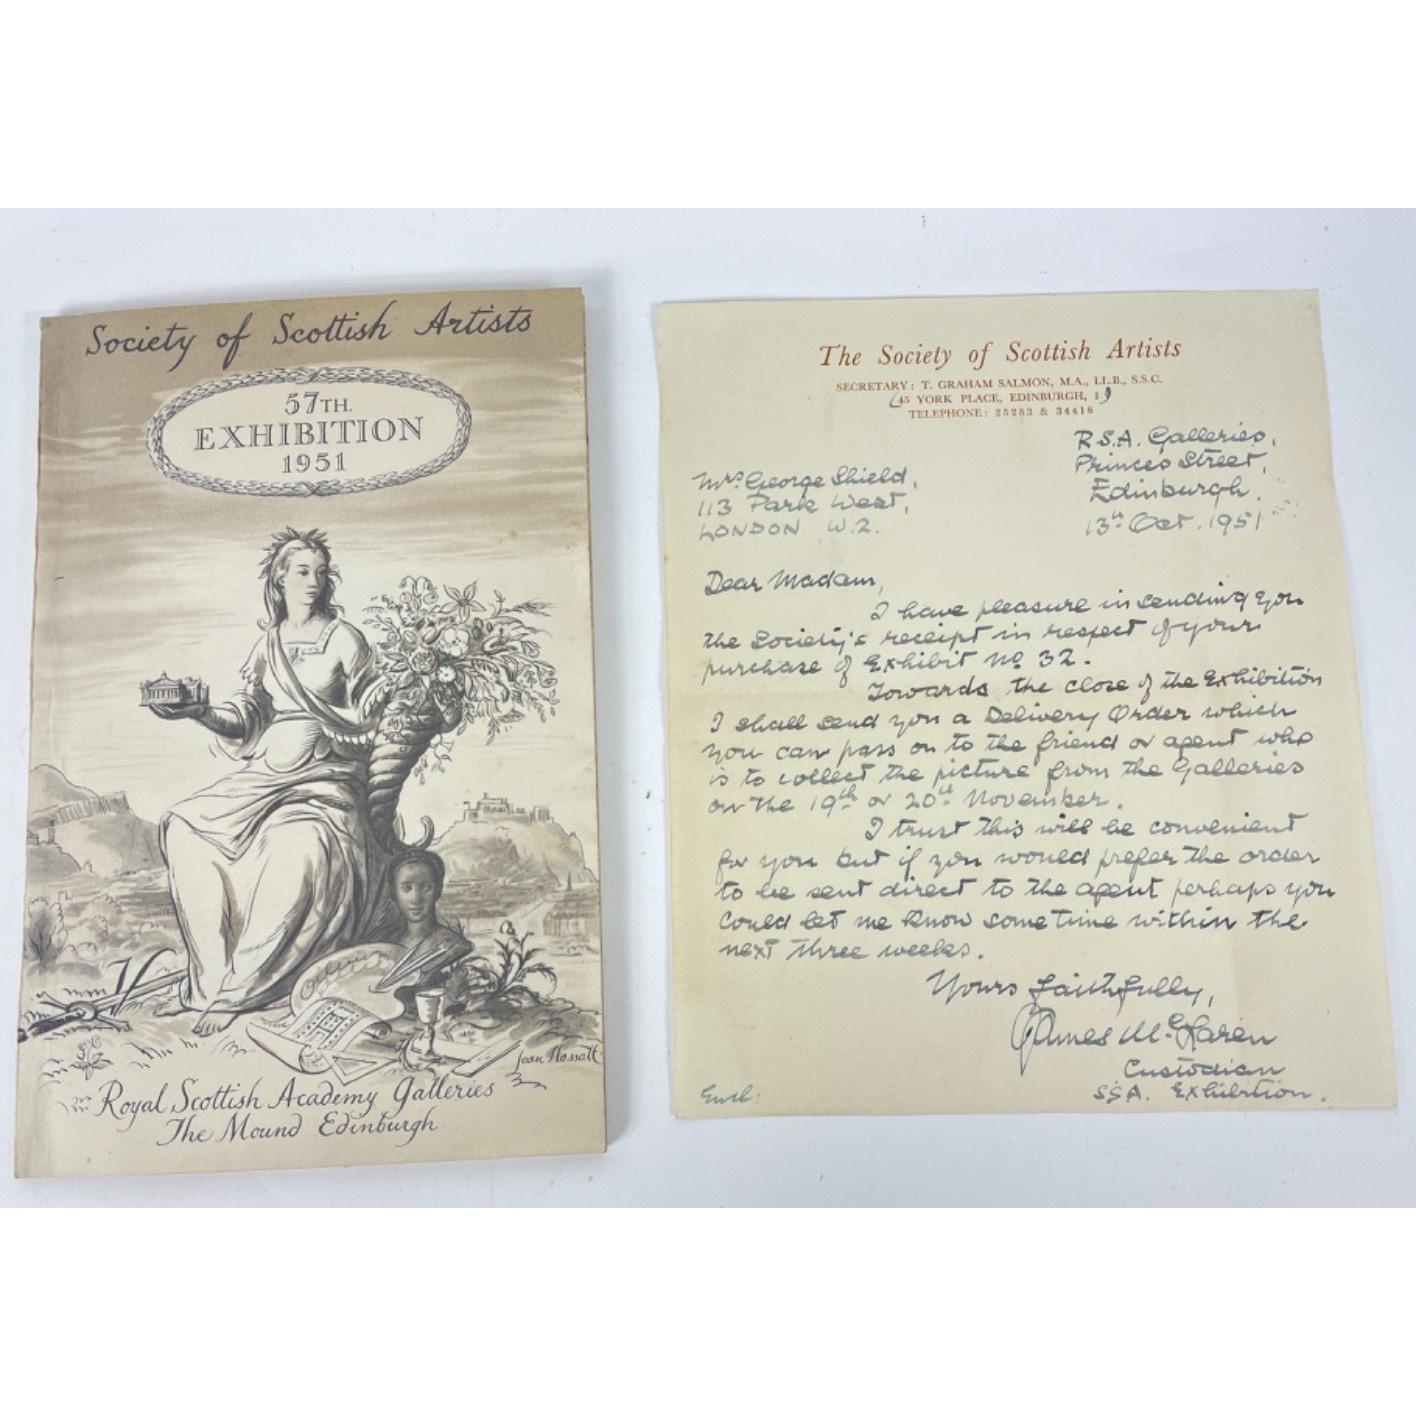 Society of Scottish Artists
57TH.
EXHIBITION
1951
Joan Hassall
Royal Scottish Academy Galleries
The Mound Edinburgh
The Society of Scottish Artists
SECRETARY: T. GRAHAM SALMON, M.A., LL.B., S.S.C.
(45 YORK PLACE, EDINBURGH, 1)
TELEPHONE: 25253 & 34418
R.S.A. Galleries,
Princes Street,
Edinburgh.
13th Oct. 1951
Mrs. George Shield,
113 Park West,
LONDON W.2.
Dear Madam,
I have pleasure in sending you
the Society's receipt in respect of your
purchase of Exhibit No. 32.
Towards the close of the Exhibition
I shall send you a Delivery Order which
you can pass on to the friend or agent who
is to collect the picture from the Galleries
on the 19th or 20th November.
I trust this will be convenient
for you but if you would prefer the order
to be sent direct to the agent perhaps you
could let me know some time within the
next three weeks.
Yours faithfully,
James McLaren
Custodian
SSA. Exhibition.
Encl: